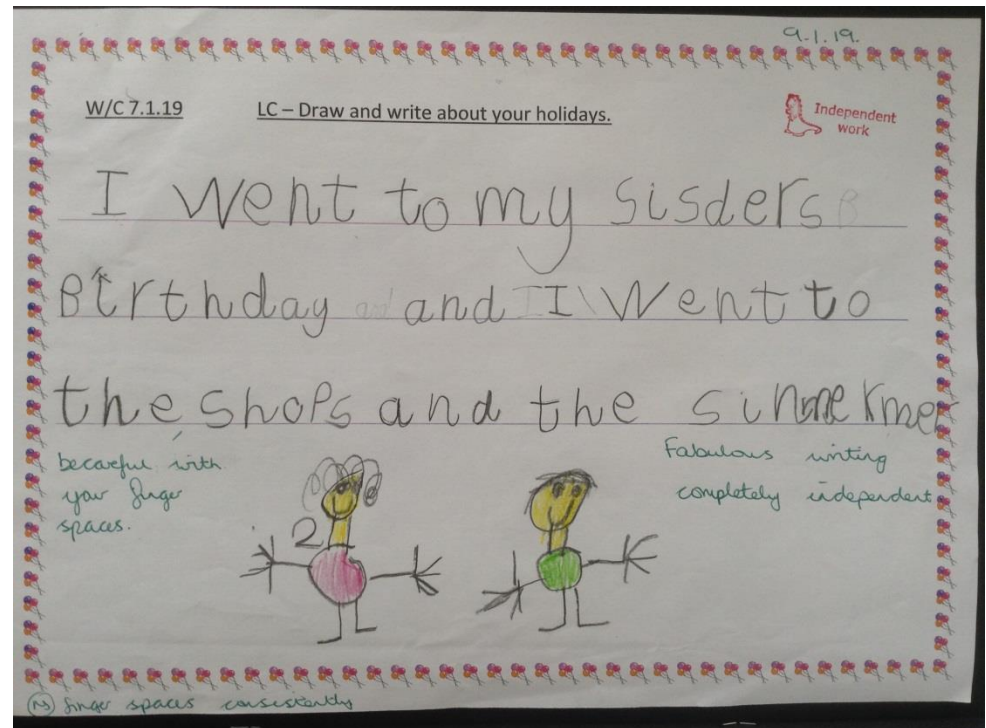 9.1.19.
W/C 7.1.19 LC – Draw and write about your holidays.
Independent
work
I went to my sisders
Birthday and I went to
the shops and the
becareful with
your finger
spaces.
Fabulous writing
completely independent
2
NS finger spaces consistently